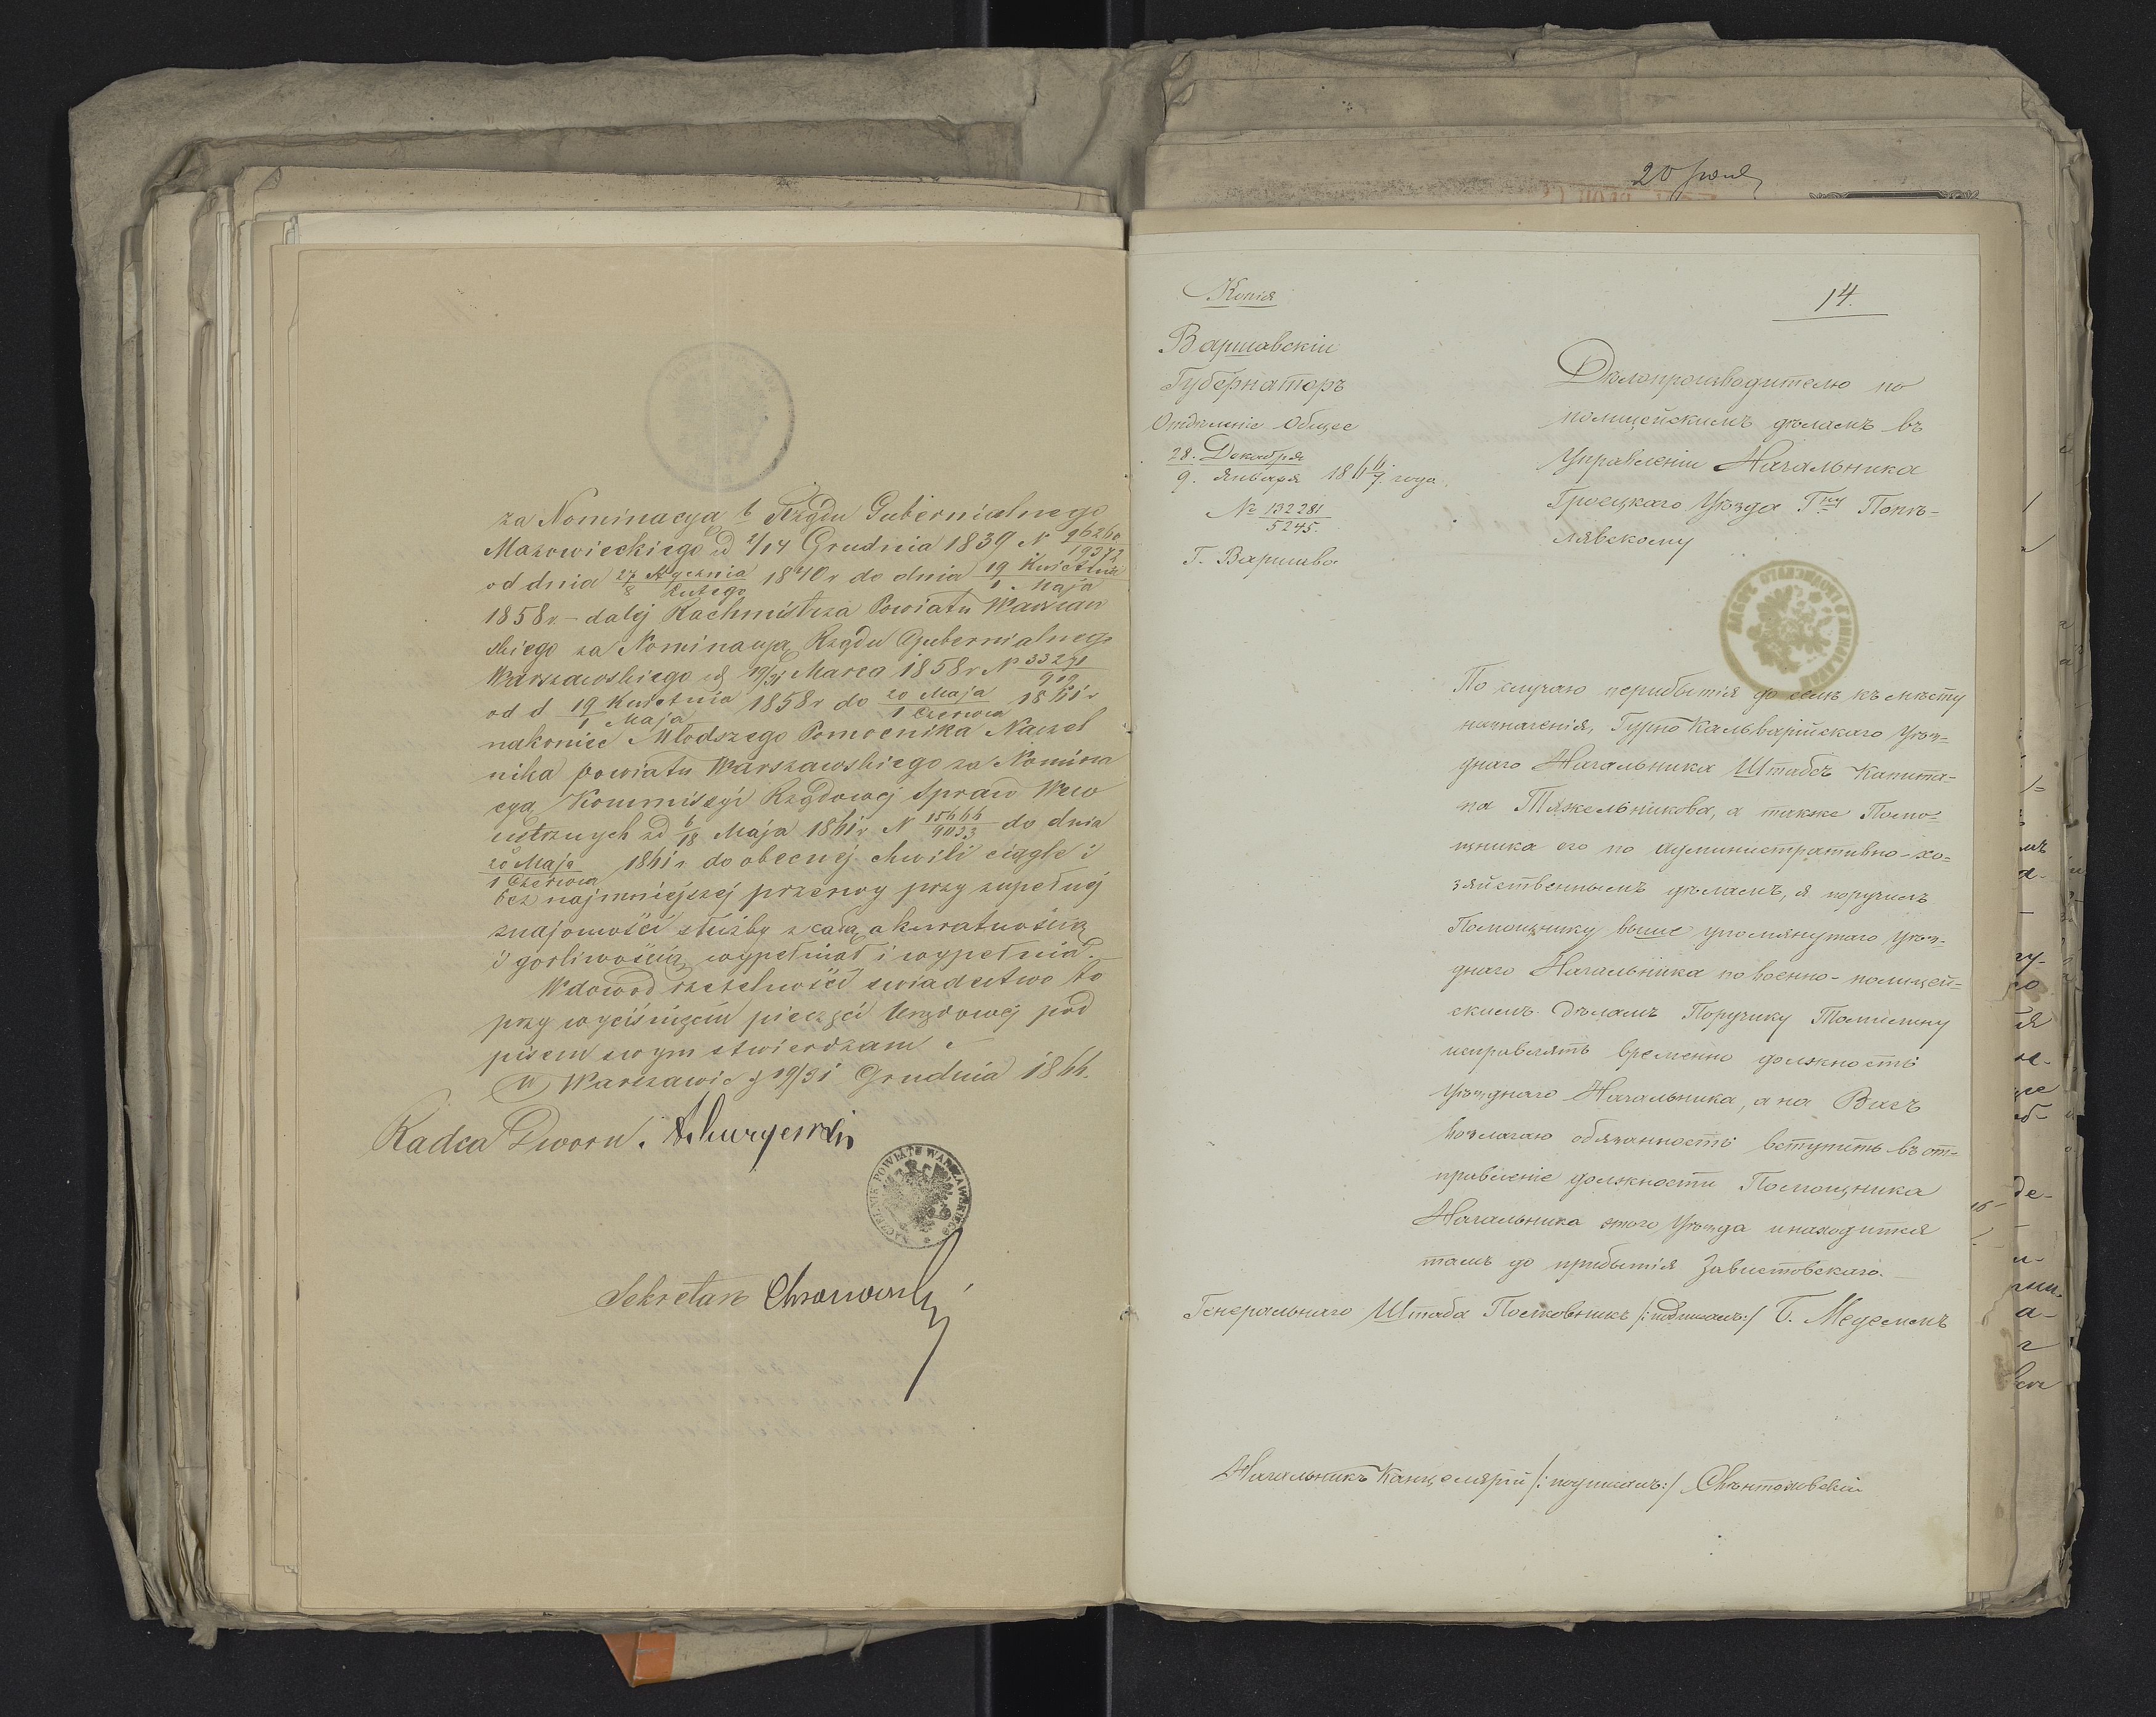 za Nominacyą b. Rządu Gubernialnego
Mazowieckiego z d 2/14 Grudnia 1839 N 96260/19372
od dnia 27 Stycznia/8 Lutego 1840 r do dnia 19 Kwietnia/1 Maja
1858 r – dalej Rachmistrza Powiatu Warszaw
skiego za Nominacyą Rządu Gubernialnego
Warszawskiego z d 19/31 Marca 1858 r N 33271/919
od d 19 Kwietnia/1 Maja 1858 r do 20 Maja/1 Czerwca 1861 r
nakoniec Młodszego Pomocnika Naczel
nika powiatu Warszawskiego za Nomina
cyą Kommissyi Rządowej Spraw Wew
nętrznych z d 6/18 Maja 1861 r N 15666/9033 do dnia
20 Maja/1 Czerwca 1861 r. do obecnej chwili ciągle i
bez najmniejszej przerwy przy zupełnej
znajomości służby z całą akuratnością
i gorliwością wypełniał i wypełnia.–
W dowód rzetelności świadectwo to
przy wyciśnięciu pieczęci Urzędowej pod
pisem swym stwierdzam.
w Warszawie d 19/31 Grudnia 1866.
Radca Dworu.
NACZELNIK POWIATU WARSZAWSKIEGO
Sekretarz
20 Іюня
Копія
14.
Варшавскій
Губернаторъ
Отдѣленіе Общее
28. Декабря/9. Января 1866/7 года.
№ 132281/5245.
Г. Варшава
Дѣлопроизводителю по
полицейскимъ дѣламъ въ
Управленіи Начальника
Гроецкаго Уѣзда Гну Попѣ-
лявскому
По случаю неприбытія до селѣ къ мѣсту
назначенія, Гурно Кальварійскаго Уѣз=
днаго Начальника Штабсъ Капита-
на Тяжельникова, а также Помо=
щника его по административно-хо=
зяйственнымъ дѣламъ, я поручилъ
Помощнику выше упомянутаго Уѣз-
днаго Начальника по военно-полицей=
скимъ Дѣламъ Поручику Томилину
исправлять временно должность
Уѣзднаго Начальника, а на Васъ
возлагаю обязанность вступить въ от=
правленіе должности Помощника
Начальника этого Уѣзда и находится
тамъ до прибытія Завистовскаго.
Генеральнаго Штаба Полковникъ /:подписалъ:/ Б. Медемъ
Начальникъ Канцеляріи /:подписалъ:/ Свѣнтоховскій